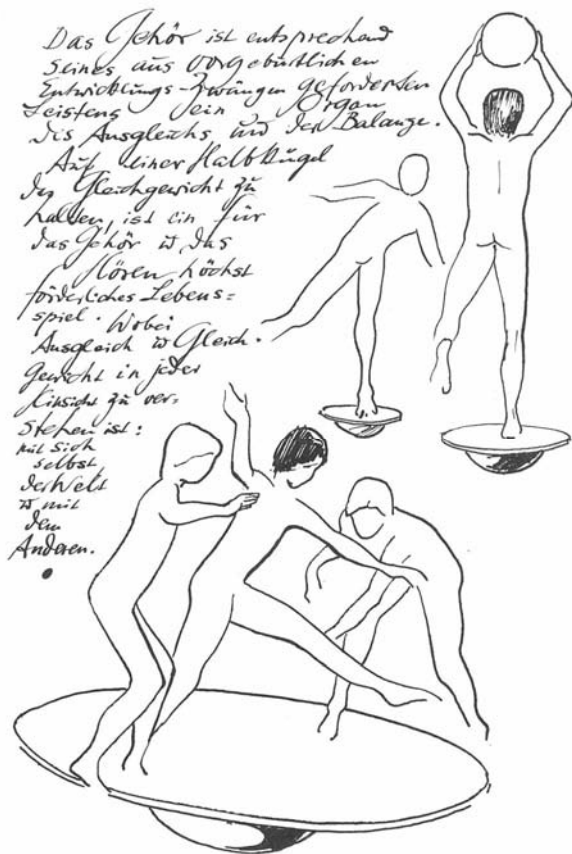 Das Gehör ist entsprechend
seines aus vorgeburtlichen
Entwicklungs-Zwängen geforderten
Leistens ein Organ
des Ausgleichs und der Balange.
Auf einer Halbkugel
das Gleichgewicht zu
halten, ist ein für
das Gehör u das
Hören höchst
förderliches Lebens=
spiel. Wobei
Ausgleich u Gleich-
gewicht in jeder
Hinsicht zu ver-
stehen ist:
mit sich
selbst
der Welt
u mit
dem
Anderen.